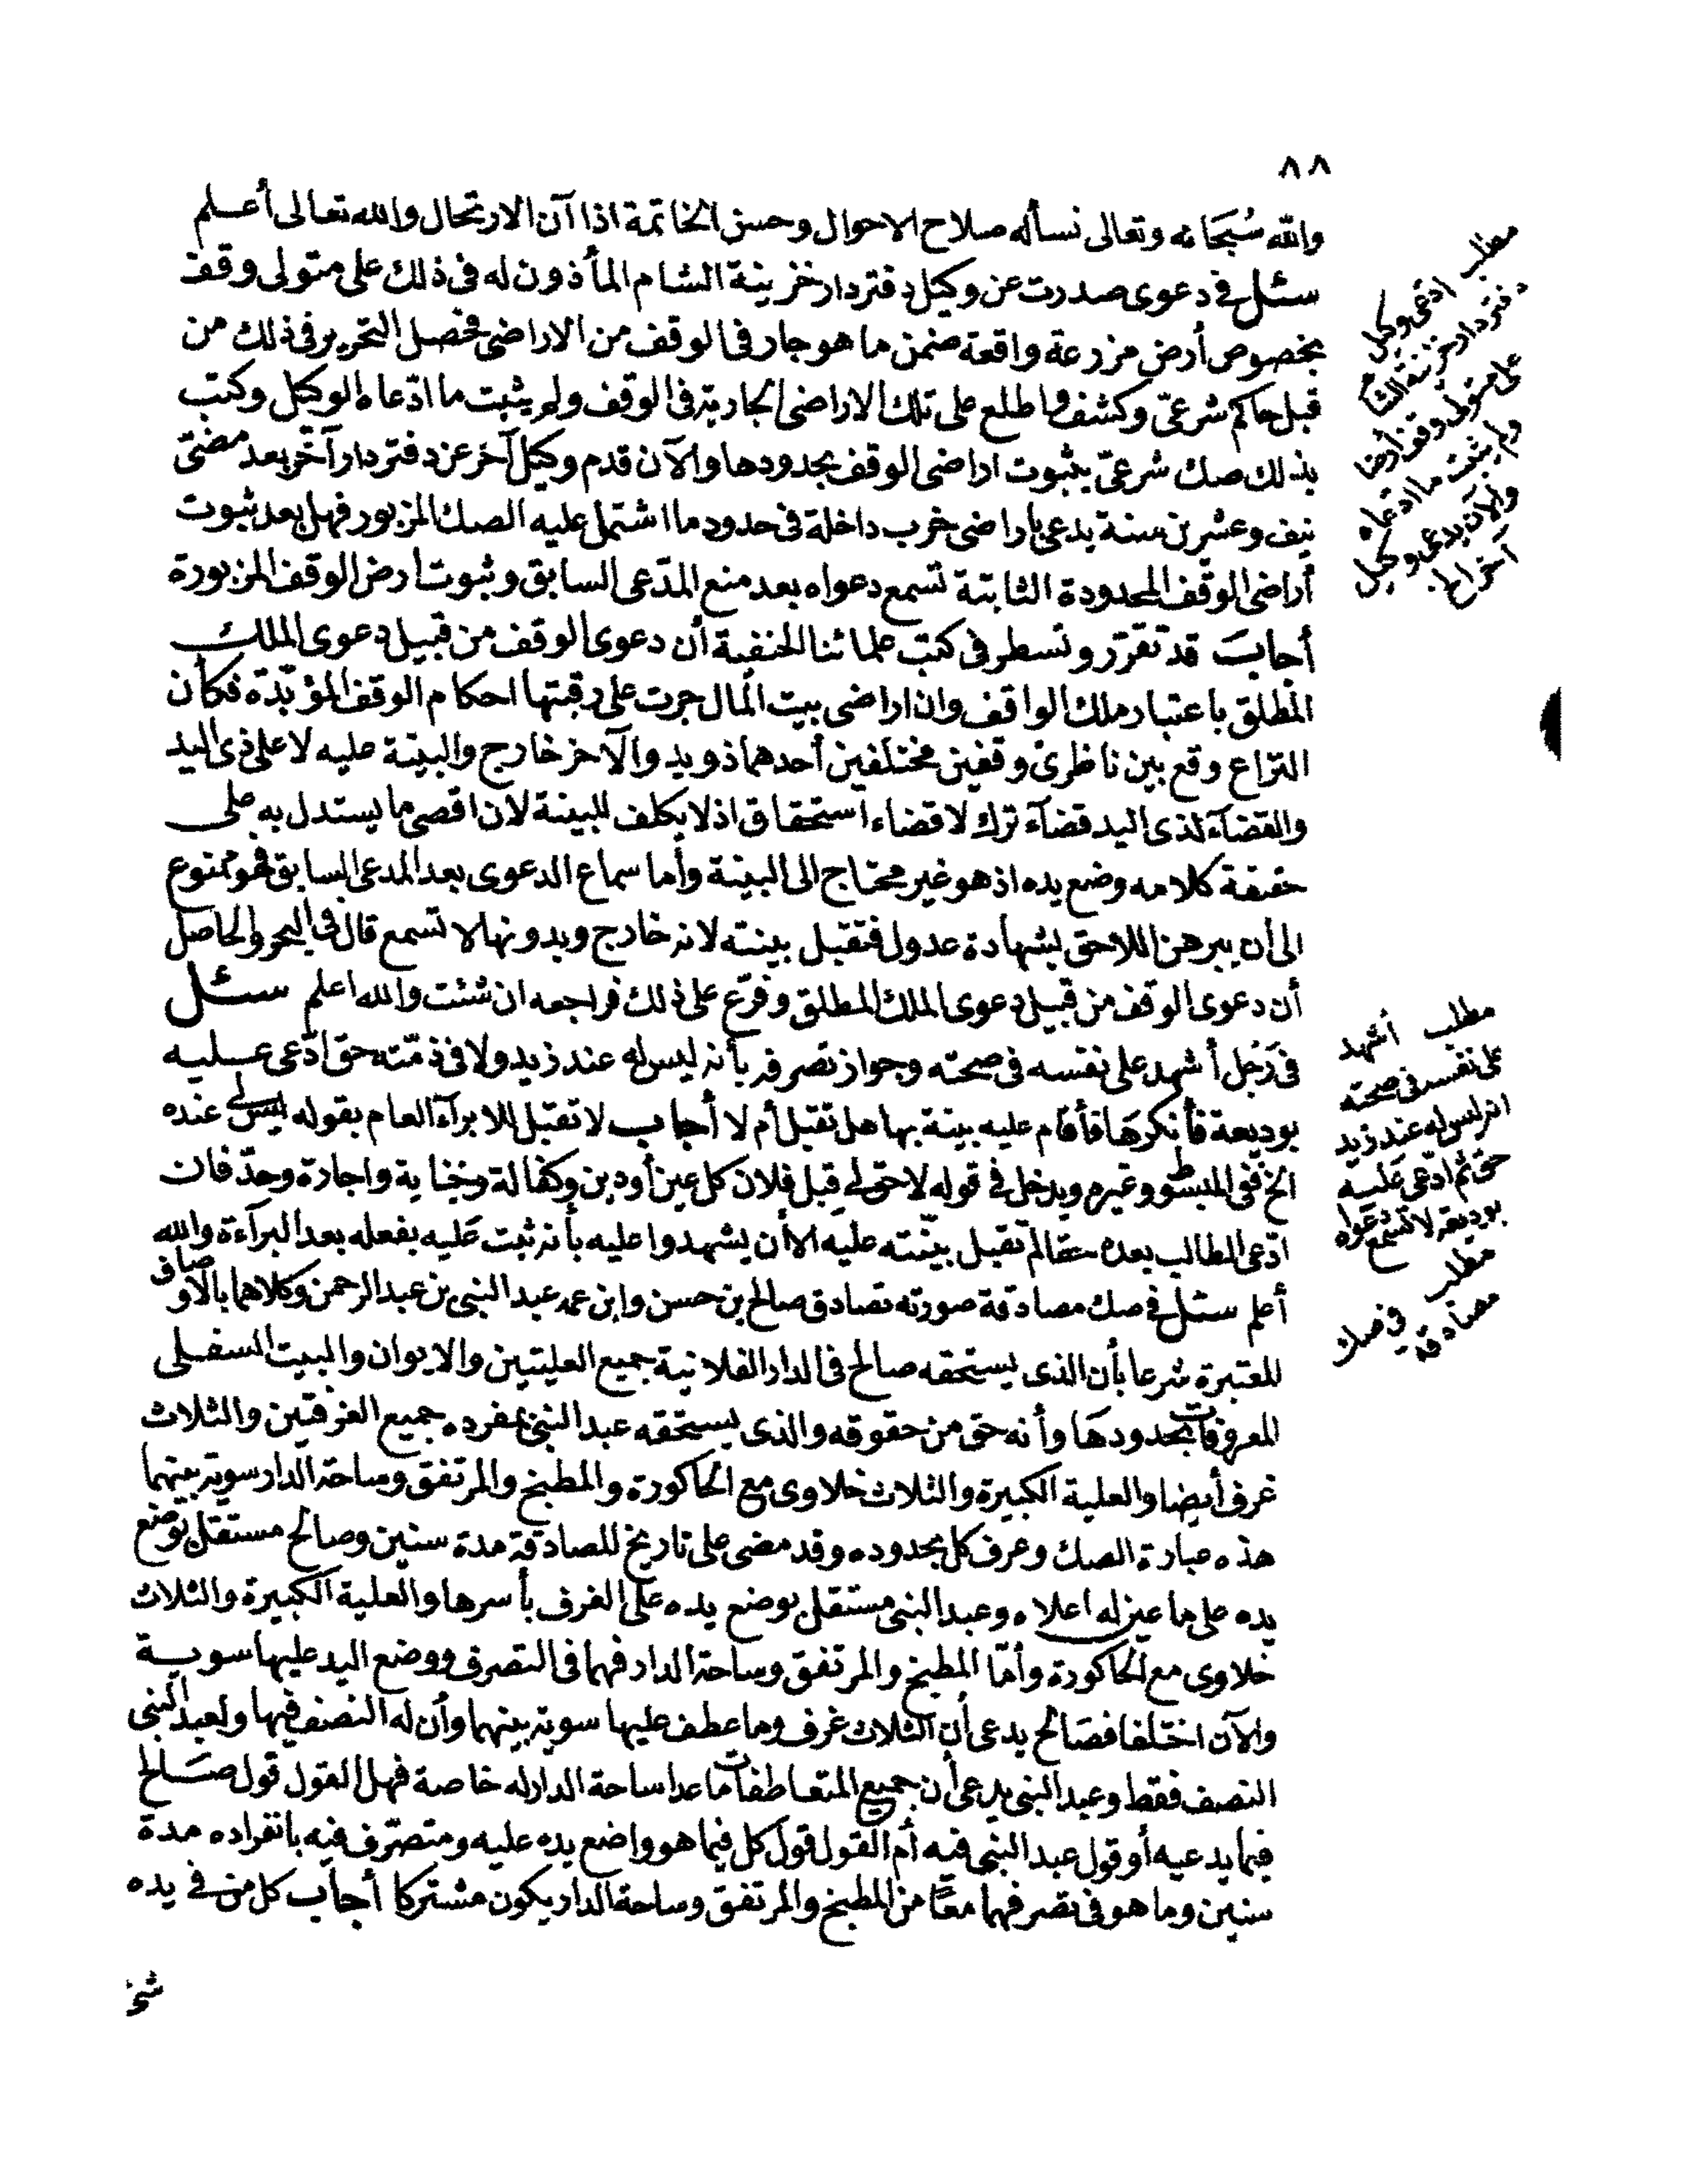 ٨٨
والله سُبحَانه وتعالى نسأله صلاح الاحوال وحسن الخاتمة اذا آن الارتحال والله تعالى أعلم
سئل في دعوى صدرت عن وكيل دفتردار خزينة الشام المأذون له في ذلك على متولى وقف
بخصوص أرض مزرعة واقعة ضمن ما هو جار في الوقف من الاراضى فحصل التحرير في ذلك من
قبل حاكم شرعىّ وكشف واطلع على تلك الاراضى الجارية في الوقف ولم يثبت ما ادّعاه الوكيل وكتب
بذلك صك شرعىّ بثبوت اراضى الوقف بحدودها والآن قدم وكيل آخر عن دفتردار آخر بعد مضىّ
نيف وعشرين سنة يدعى باراضى خرب داخلة في حدود ما اشتمل عليه الصك المزبور فهل بعد ثبوت
أراضى الوقف المحدودة الثابتة تسمع دعواه بعد منع المدّعى السابق وثبوت ارض الوقف المزبورة
أجابَ قد تقرّر وتسطر في كتب علمائنا الحنفية أن دعوى الوقف من قبيل دعوى الملك
المطلق باعتبار ملك الواقف وان اراضى بيت المال جرت على رقبتها احكام الوقف المؤبّدة فكأن
النزاع وقع بين ناظرى وقفين مختلفين أحدهما ذو يد والآخر خارج والبينة عليه لا على ذى اليد
والقضآء لذى اليد قضآء ترك لا قضاء استحقاق اذ لا يكلف للبينة لان اقصى ما يستدل به على
حقيقة كلامه وضع يده اذ هو غير محتاج الى البينة وأما سماع الدعوى بعد المدعى السابق فهو ممنوع
الى أن يبرهن اللاحق بشهادة عدول فتقبل بينته لانه خارج وبدونها لا تسمع قال في البحر والحاصل
أن دعوى الوقف من قبيل دعوى الملك المطلق وفرّع على ذلك فراجعه ان شئت والله اعلم سئل
في رَجُل أشهد على نفسه في صحته وجواز تصرفه بأنه ليس له عند زيد ولا في ذمّته حق ادّعى عليه
بوديعة فأنكرهَا فأقام عليه بينة بها هل تقبل أم لا أجاب لا تقبل للابرآء العام بقوله ليس لي عنده
الخ ففي المبسوط وغيره ويدخل في قوله لا حق لي قبل فلان كل عين أو دين وكفالة وجناية واجارة وحدّ فان
ادّعى الطالب بعده حقا لم تقبل بيّنته عليه الا أن يشهدوا عليه بأنه ثبت عَليه بفعله بعد البرآءة والله
أعلم سئل في صك مصادقة صورته تصادق صالح بن حسن وابن عمه عبد النبى بن عبد الرحمن وكلاهما بالاوصاف
المعتبرة شرعا بأن الذى يستحقه صالح في الدار الفلانية جميع العليتين والايوان والبيت السفلى
المعروفات بحدودهَا وأنه حق من حقوقه والذى يستحقه عبد النبى بمفرده جميع الغرفتين والثلاث
غرف أيضا والعلية الكبيرة والثلاث خلاوى مع الحاكورة والمطبخ والمرتفق وساحة الدار سوية بينهما
هذه عبارة الصك وعرف كل بحدوده وقد مضى على تاريخ المصادقة مدة سنين وصالح مستقل بوضع
يده على ما عين له اعلاه وعبد النبى مستقل بوضع يده على الغرف بأسرها والعلية الكبيرة والثلاث
خلاوى مع الحاكورة وأمّا المطبخ والمرتفق وساحة الدار فهما في التصرف ووضع اليد عليها سوية
والآن اختلفا فصَالح يدعى أن الثلاث غرف وما عطف عليها سوية بينهما وأن له النصف فيها ولعبد النبى
النصف فقط وعبد النبى يدعى أن جميع المتعاطفات ما عدا ساحة الدار له خاصة فهل القول قول صَالح
فيما يدعيه أو قول عبد النبى فيه أم القول قول كل فيما هو واضع يده عليه ومتصرّف فيه بانفراده مدة
سنين وما هو في تصرفهما معًا من المطبخ والمرتفق وساحة الدار يكون مشتركا أجاب كل من في يده
مطلب ادّعى وكيل
دفتردار خزينة الشام
على متولى وقف أرضا
ولم يثبت ما ادعاه
والآن يدعى وكيل
آخر الخ
مطلب أشهد
على نفسه في صحته
انه ليس له عند زيد
حق ثم ادّعى عَليه
بوديعة لا تسمع دعواه
مطلب في صك
مصادقة